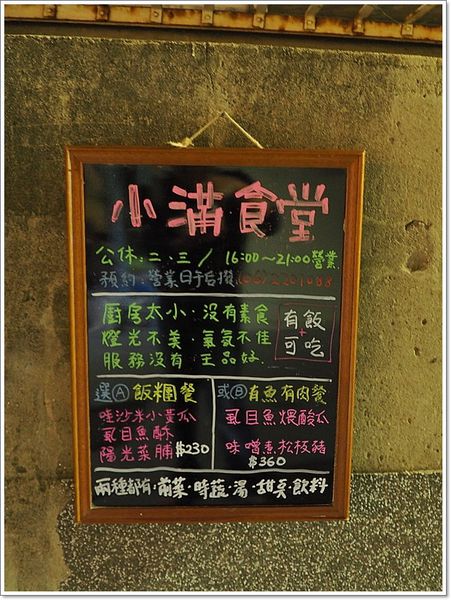 小滿食堂
公休:二、三/ 16:00~21:00營業
預約:營業日午后撥(06)2201088
廚房太小:沒有素食
燈光不美、氣氛不佳
服務沒有:王品好.
有飯
+
可吃
選Ⓐ飯糰餐
哇沙米小黃瓜
虱目魚酥
陽光菜脯 $230
或Ⓑ有魚有肉餐
虱目魚煨酸瓜
味噌煮松板豬
$360
兩種都有·前菜·時蔬·湯·甜點·飲料